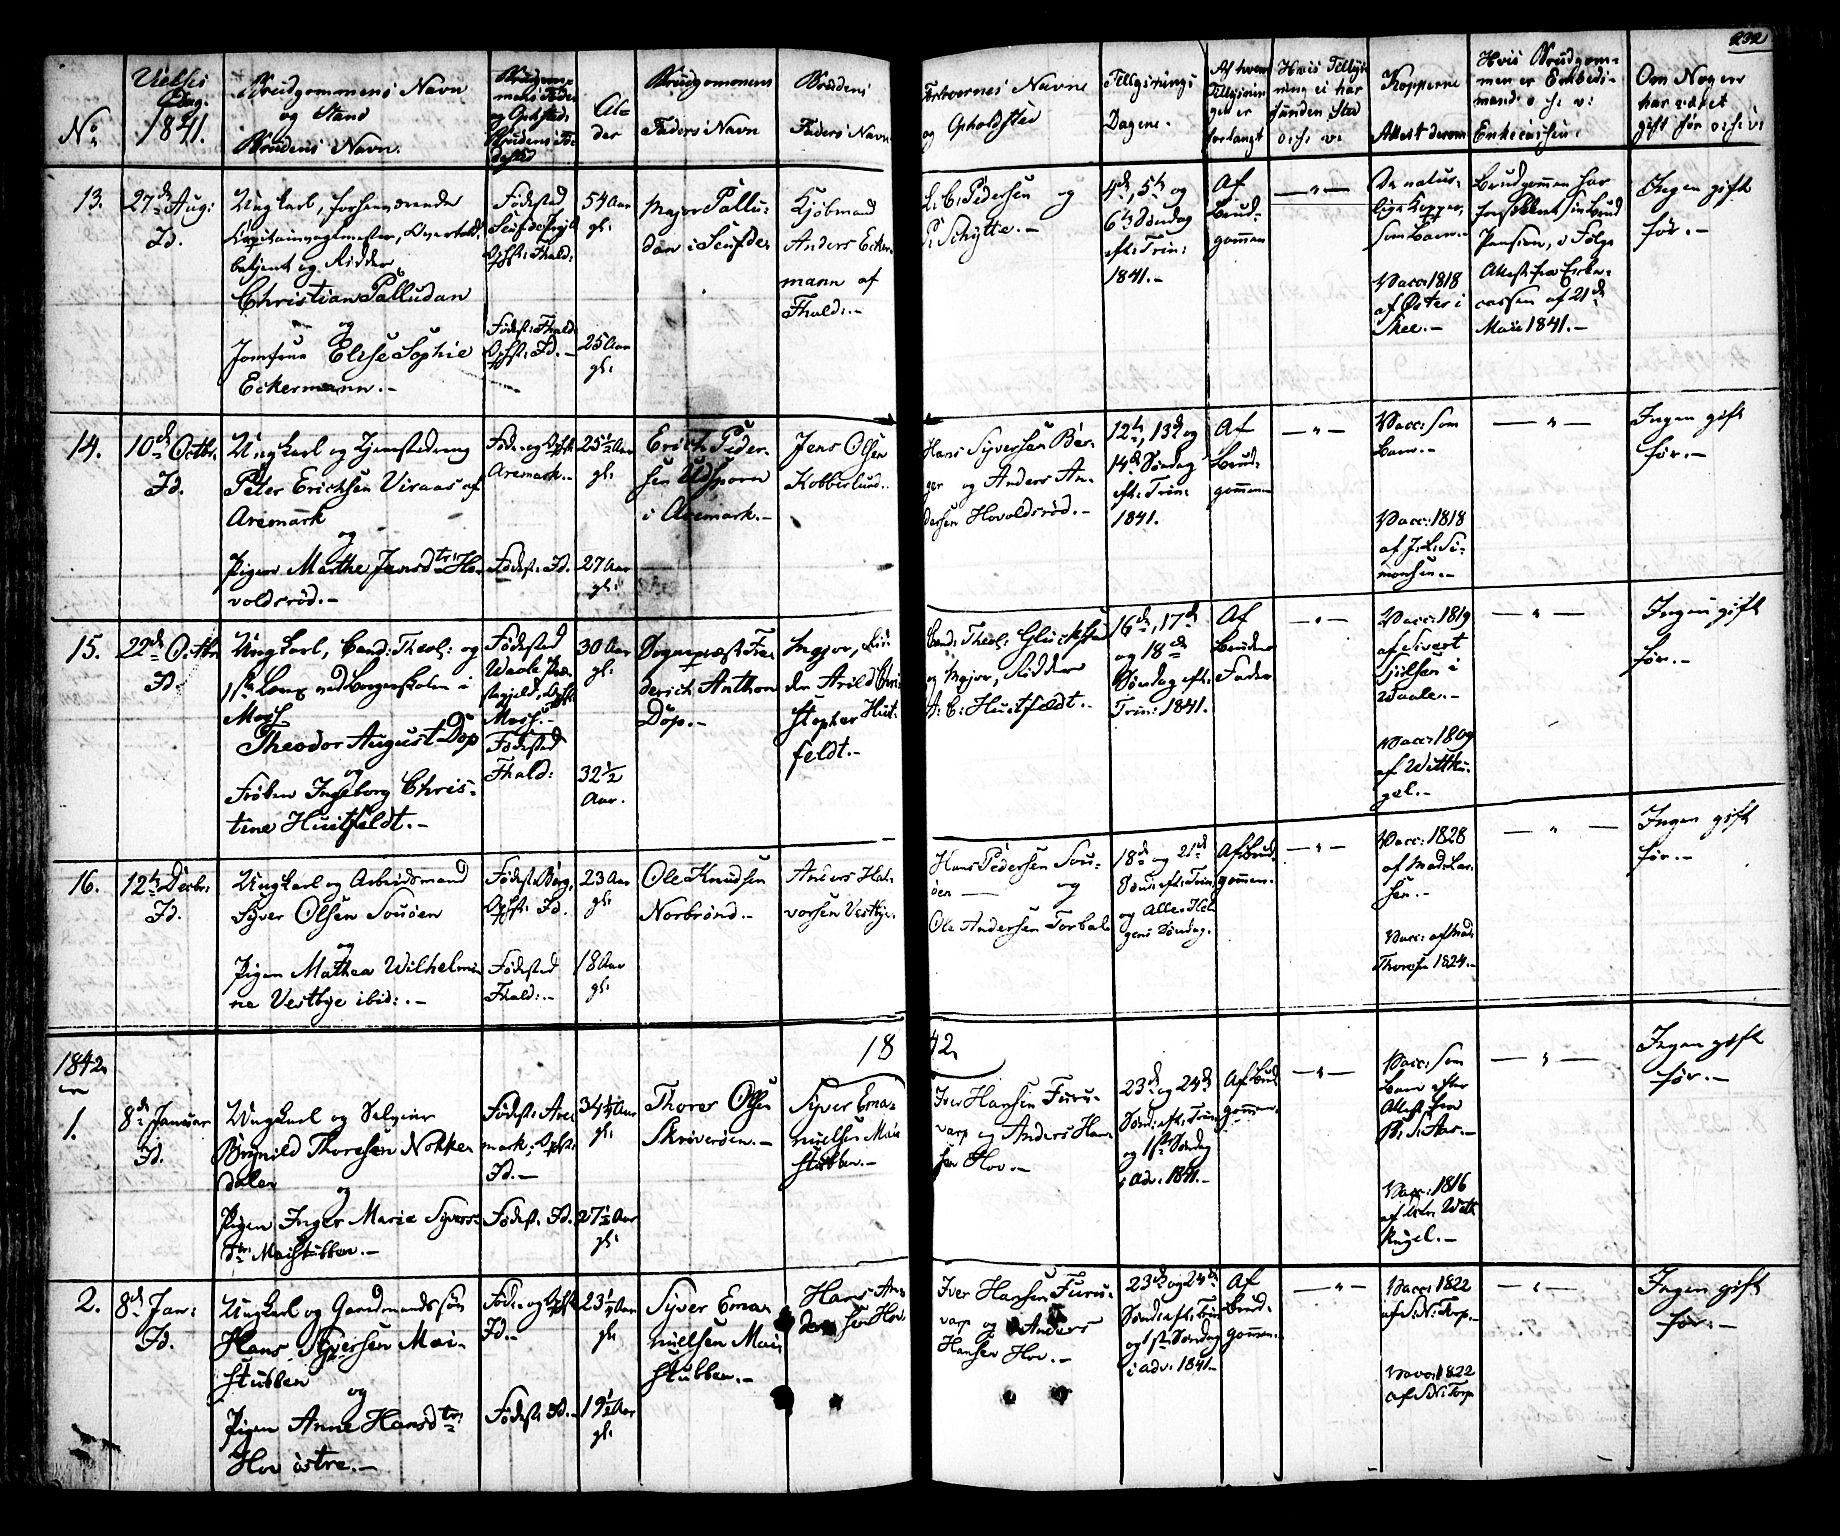 232
No
Vielses
Dag:
1841.
Brudgommens Navn
og Stand
Brudens Navn.
Brudgom-
mens Føde
og Opholdsst:
Brudens Fø-
dested
Al-
der
Brudgommens
Faders Navn
Brudens
Faders Navn
Forlovernes Navne
og Opholdsted
Tillysnings
Dagene.
Af hvem
Tillysnin-
gen er
forlangt
Hvis Tillys-
ning ei har
funden Sted
o: s: v:
Kopperne
Attest derom
Hvis Brudgom-
men er Enkedi-
mand o: s: v:
Enkecassen.
Om Nogen
har været
gift før o: s: v:
13.
27de Aug:
Id.
Ungkarl, forhenværende
og Ridder
Christian Palludan
og
Jomfrue Elise Sophie
Eckermann.-
Fødested
Opst: Fhald:
Fødest: Fhald:
Opst: Id.-
54 Aar
gl:
25 Aar
gl:
Major Pallu-
dan i
Kjøbmand
Anders Ecker-
mann af
Fhald:.-
C: Pedersen og
P: Schytte.-
4de, 5te og
6te Søndag
eft: Trin:
1841.-
Af
Brud-
gommen
—"—
De natur-
lige Kopper,
som Barn.-
Vacc: 1818
af Øster i
Skee.-
Brudgommen har
Pension, i Følge
Attest fra Enke-
cassen af 21de
Mai 1841.-
Ingen gift
før.-
14.
10de Octbr.
Id.
Ungkarl og Tjenestedreng
Peter Erichsen Viraas af
Aremark
og
Pigen Marthe Jensdtr: Ho-
voldsrød.-
Føde- og Opst:
Aremark.-
Fødest: Id.-
25½ Aar
gl:
27 Aar
gl:
Erich Peder-
sen
i Aremark.-
Jens Olsen
Kobberlund.
Hans Syversen Ber-
ger og Anders An-
dersen Hovoldsrød.-
12te, 13de og
14de Søndag
eft: Trin:
1841.
Af
Brud-
gommen
—"—
Vacc: som
Barn.-
Vacc: 1818
af J: L: Si-
monsen.-
—"—
Ingen gift
før.-
15.
22de Octbr
Id
Ungkarl, Cand: Theol: og
1ste Lærer ved Borgerskolen i
Moss
Theodor August Døp
og
Frøken Ingeborg Chris-
tine Huitfeldt.-
Fødested
Waale Præ-
stegjeld, Opst:
Moss.-
Fødested
Fhald:
30 Aar
gl:
32½
Aar.
Sognepræst Fre-
derich Anthon
Døp.-
Major, Rid-
der Arild Chri-
stopher Huit-
feldt.-
Cand: Theol: Glückstad
og Major, Ridder
A: C: Huitfeldt.-
16de, 17de
og 18de
Søndag eft:
Trin: 1841.
Af
Brudens
Fader
—"—
Vacc: 1819
af Sivert
i
Waale.-
Vacc: 1809
af Wittku-
gel.-
—"—
Ingen gift
før.-
16.
12te Decbr:
Id.
Ungkarl og Arbeidsmand
Syver Olsen Souøen
og
Pigen Mathea Wilhelmi-
ne Vestbye ibid:.-
Fødest: Berg,
Opst: Id.
Fødested
Fhald:.-
23 Aar
gl:
18 Aar
gl:
Ole Knudsen
Norbrønd.-
Anders Hal-
vorsen Vestbye.
Hans Pedersen Sou-
øen — og
Ole Andersen Torbal
18de og 21de
Sønd: eft: Trin:
og Alle Hel-
gens Søndag.
Af Brud-
gommen.
—"—
Vacc: 1828
af Mad: Lar-
sen.-
Vacc: af Mad:
Thoresen 1824.-
—"—
Ingen gift
før.-
1842
1842
1.
8de Januar
Id.
Ungkarl og Selveier
Brynild Thoresen Nokke-
dalen
og
Pigen Inger Marie Syvers-
dtr: Maistubben.-
Fødest: Are-
mark; Opst:
Id.-
Fødest: Id.
34¼ Aar
gl:
27½ Aar
gl:
Thores Olsen
Skrøverøen.-
Syver Ema-
nuelsen Mai-
stubben.-
Iver Hansen Furu-
varp og Anders Han-
sen Hov.-
23de og 24de
Sønd: eft: Trin:
og 1ste Søndag
i Adv: 1841.-
Af Brud-
gommen.
—"—
Vacc: som
Barn efter
Attest fra
Vacc: 1816
Witt-
kugel.-
—"—
Ingen gift
før.-
2.
8de Jan:
Id.
Ungkarl og Gaardmandssøn
Hans Syversen Mai-
stubben
og
Pigen Anne Hansdtr:
Hov østre.-
Føde- og Opst:
Id.-
Fødest: Id.-
23¼ Aar
gl:
19½ Aar
gl:
Syver Ema-
nuelsen Mai-
stubben.-
Hans An-
dersen Hov.
Iver Hansen Furu-
varp og Anders
Hansen Hov.-
23de og 24de
Sønd: eft: Trin:
og 1ste Søndag
i Adv: 1841.-
Af
Brud-
gommen.
—"—
Vacc: 1822
af S: N: Torp.-
Vacc: 1822
af S: N: Torp
—"—
Ingen gift
før.-